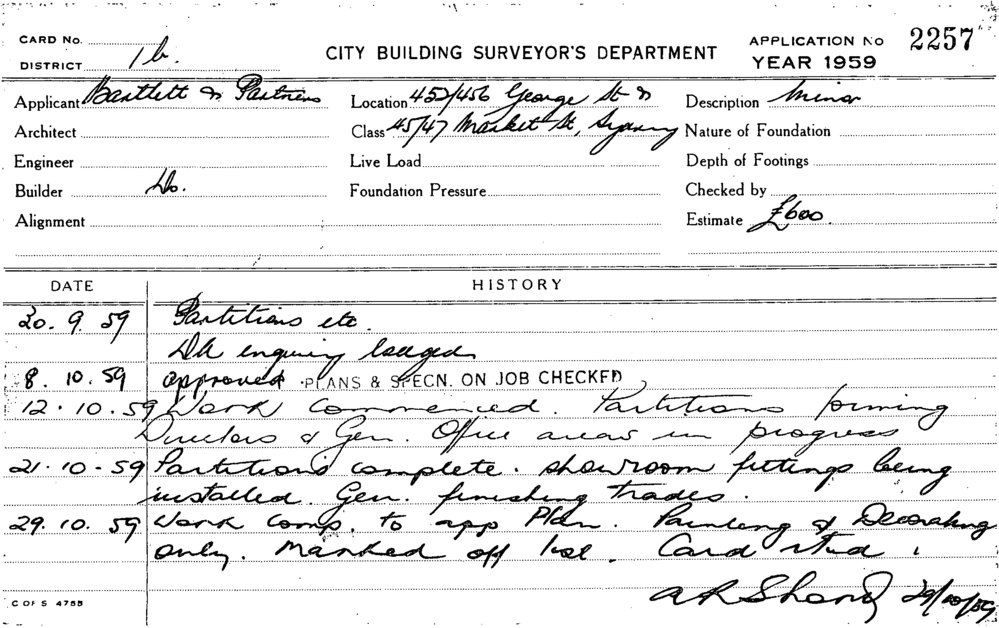 CARD No.
DISTRICT 1b.
CITY BUILDING SURVEYOR'S DEPARTMENT
APPLICATION No 2257
YEAR 1959
Applicant Bartlett & Partners
Location 452/456 George St &
Description Minor
Architect
Class 45/47 Market St, Sydney
Nature of Foundation
Engineer
Live Load
Depth of Footings
Builder Do.
Foundation Pressure
Checked by
Alignment
Estimate £600
DATE
HISTORY
30. 9. 59 Partitions etc.
DA enquiry lodged
8. 10. 59 approved PLANS & SPECN. ON JOB CHECKED
12. 10. 59 Work Commenced. Partitions forming
Directors & Gen. Office areas in progress
21. 10 - 59 Partitions complete. Showroom fittings being
installed. Gen. finishing trades.
29. 10. 59 Work Comp. to app Plan. Painting & Decorating
only. Marked off list. Card
29/10/59
C OF S 4755